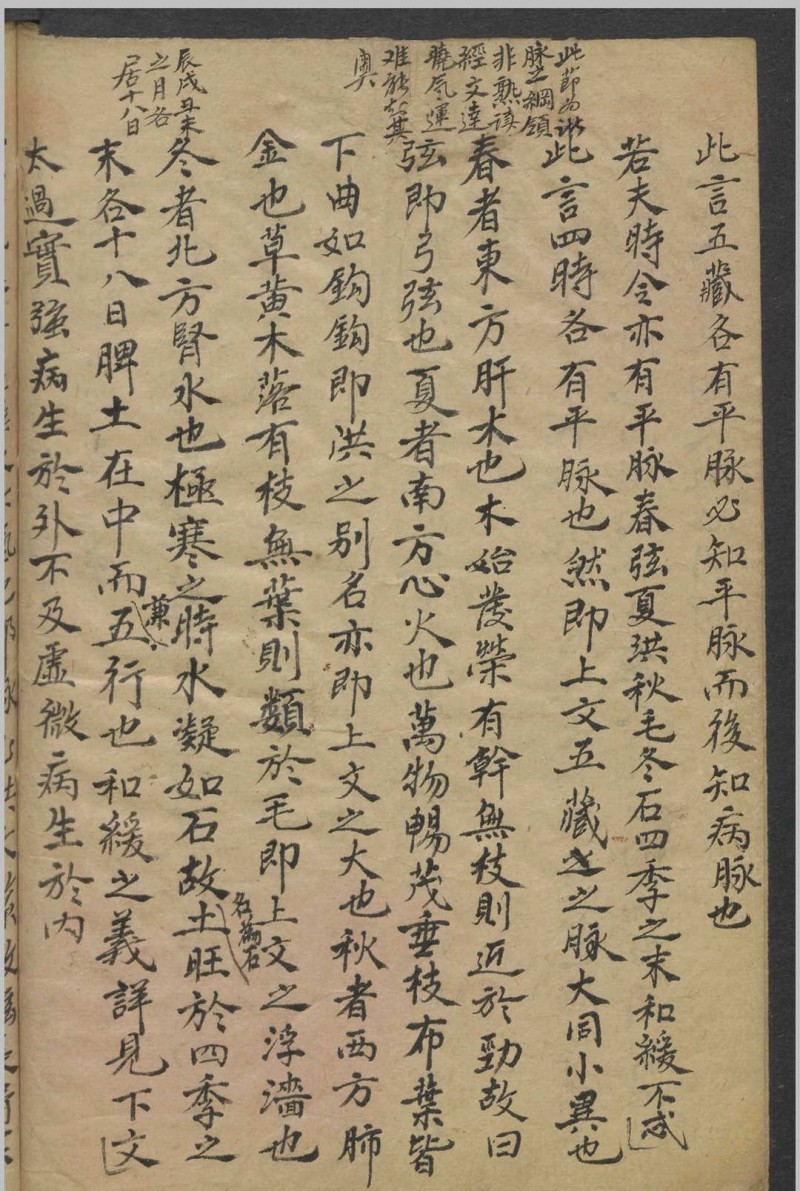 此節為診
脉之綱領
非熟讀
經文達
曉氣運
难能知其
奧
辰戌丑未
之月各
居十八日
此言五藏各有平脉必知平脉而後知病脉也
若夫時令亦有平脉春弦夏洪秋毛冬石四季之末和緩不忒
此言四時各有平脉也然即上文五藏之之脉大同小異也
春者東方肝木也木始發榮有幹無枝則近於勁故曰
弦即弓弦也夏者南方心火也萬物暢茂垂枝布葉皆
下曲如鈎鈎即洪之别名亦即上文之大也秋者西方肺
金也草黄木落有枝無葉則類於毛即上文之浮濇也
冬者北方腎水也極寒之時水凝如石故名為石土旺於四季之
末各十八日脾土在中而兼五行也和緩之義詳見下文
太過實强病生於外不及虚微病生於内